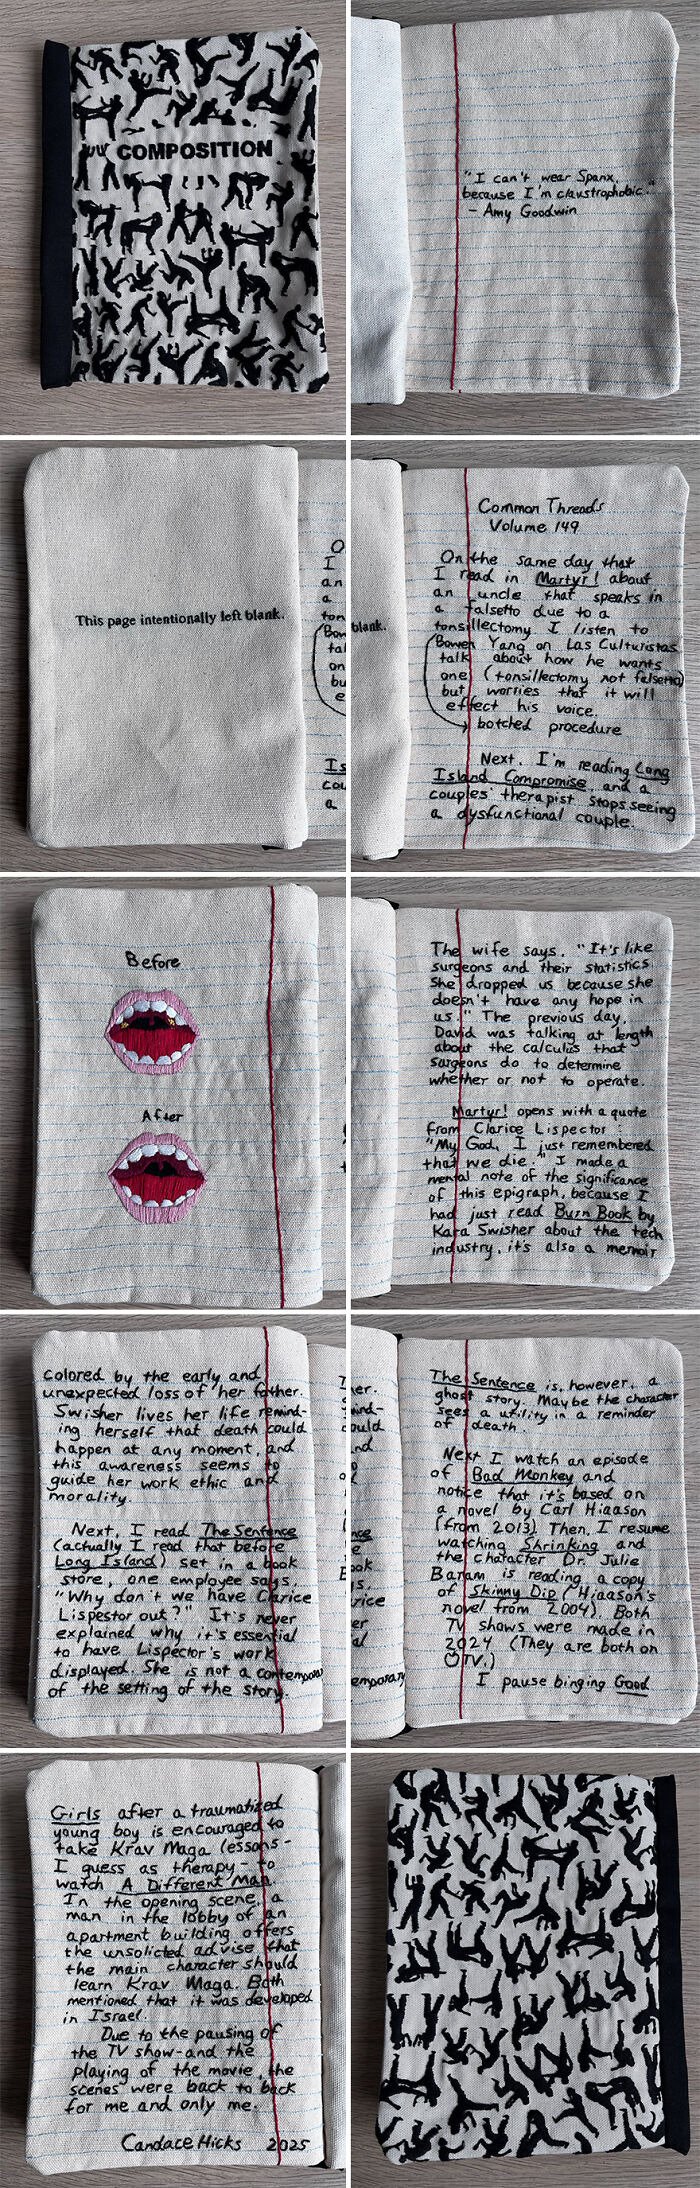 COMPOSITION
"I can't wear Spanx,
because I'm claustrophobic."
- Amy Goodwin
This page intentionally left blank.
Common Threads
Volume 149
On the same day that
I read in Martyr! about
an uncle that speaks in
a falsetto due to a
tonsillectomy I listen to
Bowen Yang on Las Culturistas
talk about how he wants
one (tonsillectomy not falsetto)
but worries that it will
effect his voice.
botched procedure
Next, I'm reading Long
Island Compromise, and a
couples' therapist stops seeing
a dysfunctional couple.
Before
After
The wife says, "It's like
surgeons and their statistics.
She dropped us because she
doesn't have any hope in
us." The previous day,
David was talking at length
about the calculus that
surgeons do to determine
whether or not to operate.
Martyr! opens with a quote
from Clarice Lispector:
"My God, I just remembered
that we die." I made a
mental note of the significance
of this epigraph, because I
had just read Burn Book by
Kara Swisher about the tech
industry, it's also a memoir
colored by the early and
unexpected loss of her father.
Swisher lives her life remind-
ing herself that death could
happen at any moment, and
this awareness seems to
guide her work ethic and
morality.
Next, I read The Sentence
(actually I read that before
Long Island) set in a book
store, one employee says,
"Why don't we have Clarice
Lispestor out?" It's never
explained why it's essential
to have Lispector's work
displayed. She is not a contemporary
of the setting of the story.
The Sentence is, however, a
ghost story. Maybe the character
sees a utility in a reminder
of death.
Next I watch an episode
of Bad Monkey and
notice that it's based on
a novel by Carl Hiaason
(from 2013). Then, I resume
watching Shrinking and
the character Dr. Julie
Baram is reading a copy
of Skinny Dip (Hiaason's
novel from 2004). Both
TV shows were made in
2024 (They are both on
TV.)
I pause binging Good
Girls after a traumatized
young boy is encouraged to
take Krav Maga lessons -
I guess as therapy - to
watch A Different Man.
In the opening scene, a
man in the lobby of an
apartment building offers
the unsolicted advise that
the main character should
learn Krav Maga. Both
mentioned that it was developed
in Israel.
Due to the pausing of
the TV show - and the
playing of the movie, the
scenes were back to back
for me and only me.
Candace Hicks 2025